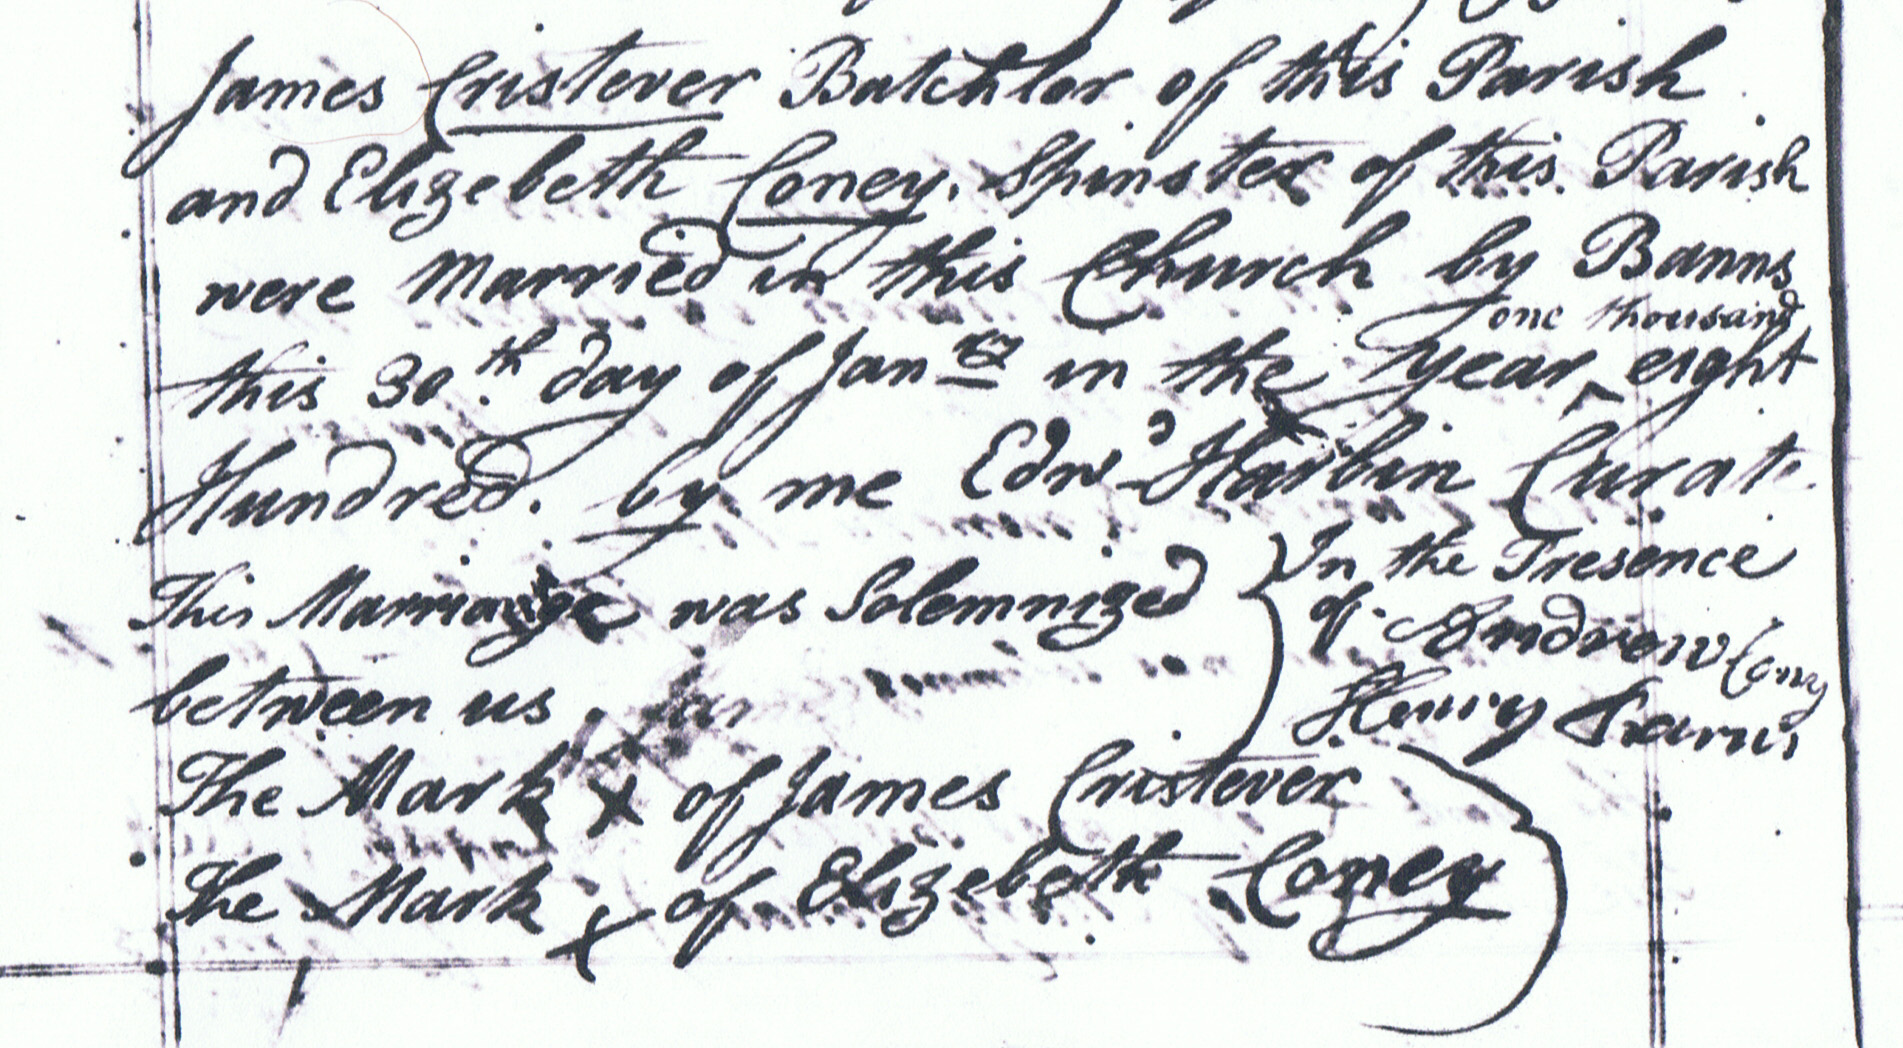 James Cristever Batchlor of this Parish
and Elizebeth Coney. Spinster of this Parish
were Married in this Church by Banns
one thousand
this 30th. day of Janry in the Year ^ eight
Hundred. by me Edwd Harbin Curate
This Marriage was Solemnized
between us.
In the Presence
of Andrew Cony
Henry
The Mark X of James Cristever
The Mark X of Elizebeth Coney